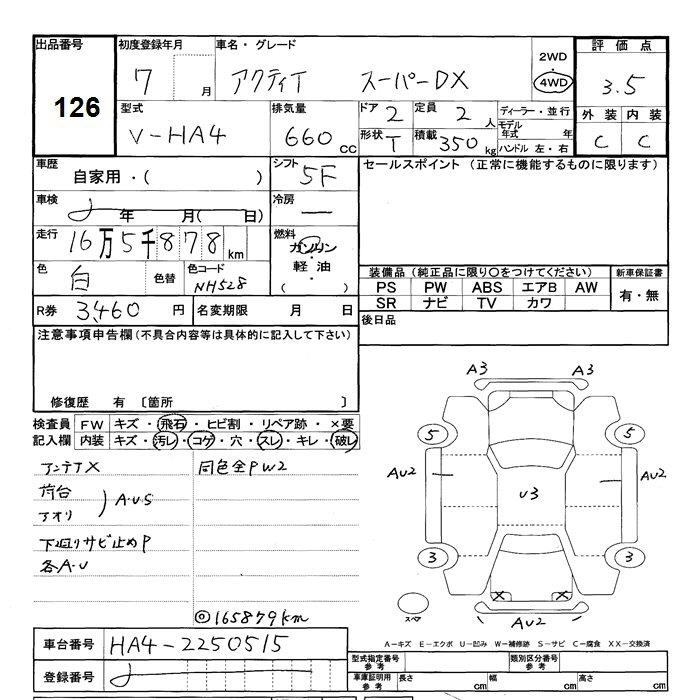 出品番号 初度登録年月 車名・グレード 2WD 評価点
126 7 月 アクティT スーパーDX 4WD 3.5
型式 排気量 ドア 2 定員 2 人 ディーラー・並行 外装 内装
V-HA4 660 cc 形状 T 積載 350 kg モデル年式 年 C C
ハンドル 左・右
車歴 自家用・( ) シフト 5F セールスポイント (正常に機能するものに限ります)
車検 年 月( 日) 冷房 ー
走行 16万5千878 km 燃料 ガソリン・軽油・( )
色 白 色替 色コード NH528 装備品 (純正品に限り○をつけてください) 新車保証書
PS PW ABS エアB AW 有・無
SR ナビ TV カワ
R券 3,460 円 名変期限 月 日 後日品
注意事項申告欄 (不具合内容等は具体的に記入して下さい)
修復歴 有 〔箇所 〕
検査員 FW キズ・飛石・ヒビ割・リペア跡・×要
記入欄 内装 キズ・汚レ・コゲ・穴・スレ・キレ・破レ
アンテナX 同色全PW2
荷台
アオリ ) A・U・S
下廻りサビ止めP
各A・U
◎165879km
A3 A3
5 5
AU2 AU2
U3
3 3
X X
スペア AU2
A-キズ E-エクボ U-凹み W-補修跡 S-サビ C-腐食 XX-交換済
車台番号 HA4-2250515
登録番号
型式指定番号 参考 類別区分番号 参考
車庫証明用 参考 長さ cm 幅 cm 高さ cm